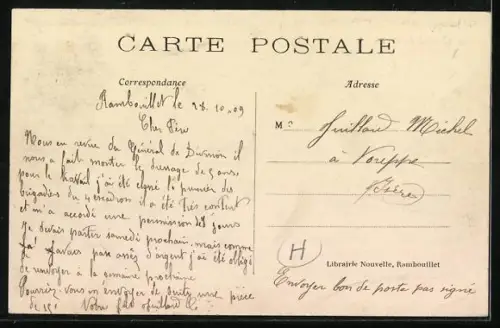 CARTE POSTALE
Correspondance
Adresse
Rambouillet le 28.10.09
Cher Père
Nous en revue du Général de Division il
nous a fait monter le dressage de 5 ans
pour le travail j'ai été le premier des
brigadiers du 4 escadron il a été très content
et m'a accordé une permission de jours
Je devais partir samedi prochain mais comme
j'avais pas assez d'argent j'ai été obligé
de renvoyer à la semaine prochaine
Pourriez-vous m'envoyer de suite une pièce
de 15f Votre fils
M. Michel
à Voreppe
Isère
H
Librairie Nouvelle, Rambouillet
Envoyer bon de poste pas signé